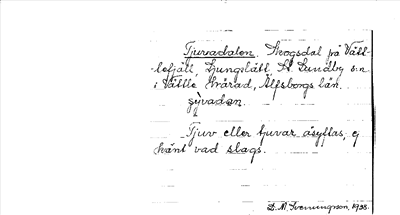 Tjuvadalen. Skogsdal på Vätt-
lefjäll, Ljungslätt St. Lundby s:n
i Vättle härad, Älfsborgs län.
Tjuv eller tjuvar åsyftas, ej
känt vad slags.
D. A. Svenungsson, 1928.